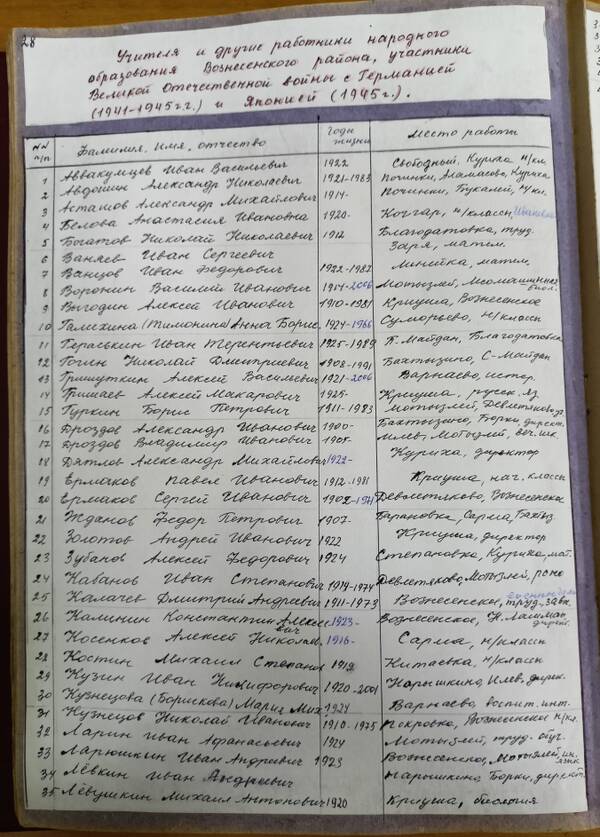 28
Учителя и другие работники народного
образования Вознесенского района, участники
Великой Отечественной войны с Германией
(1941-1945 г.г.) и Японией (1945г.).
NN п/п Фамилия, имя, отчество Годы жизни Место работы
1 Аввакумцев Иван Васильевич 1922 Свободный, Куриха н/кл.
2 Авдошин Александр Николаевич 1921-1983 Починки, Аламасово, Куриха
3 Асташов Александр Михайлович 1914- Починки, Букалей, н/кл.
4 Белова Анастасия Ивановна 1920- Коччар, н/классы,
5 Богатов Николай Николаевич 1912 Благодатовка, труд.
6 Ваняев Иван Сергеевич Заря, матем.
7 Ванцов Иван Федорович 1922-1987 Линейка, матем.
8 Воронин Василий Иванович 1914-2006 Мотызлей, биол.
9 Выгодин Алексей Иванович 1910-1981 Криуша, Вознесенское
10 Галихина (Тимонина) Анна Борис. 1924-1986 Суморьево, н/классы
11 Гераськин Иван Терентьевич 1925-1989 П. Майдан, Благодатовка
12 Гогин Николай Дмитриевич 1908-1991 Бахтызино, С-Майдан
13 Гришуткин Алексей Васильевич 1921-2006 Варнаево, истор.
14 Гришаев Алексей Макарович 1925- Криуша, русск. яз.
15 Гуркин Борис Петрович 1911-1983 Мотызлей, Девлетяково
16 Дроздов Александр Иванович 1900- Бахтызино, Борки, директ.
17 Дроздов Владимир Иванович 1905- Илев, Мотызлей,
18 Дятлов Александр Михайлович 1922- Куриха, директор
19 Ермаков Павел Иванович 1912-1981 Криуша, нач. классы
20 Ермаков Сергей Иванович 1902-1971 Девлетяково, Вознесенское
21 Жданов Федор Петрович 1907- Тарановка, Сарма, Бахтыз.
22 Золотов Андрей Иванович 1922 Криуша, директор
23 Зубанов Алексей Федорович 1924 Степановка, Куриха, мат.
24 Кабанов Иван Степанович 1919-1974 Девлетяково, Мотызлей, роно
25 Калачев Дмитрий Андреевич 1911-1973 Вознесенское, труд.,
26 Калинин Константин Алексеевич 1923- Вознесенское, директ.
27 Косенков Алексей Николаев. 1916- Сарма, н/классы
28 Костин Михаил Степанов 1919 Китаевка, н/классы
29 Кузин Иван Никифорович 1920-2001 Нарышкино, Илев, директ.
30 Кузнецова (Борискова) Мария Мих. 1924 Варнаево, воспит. инт.
31 Кузнецов Николай Иванович 1910-1975 Покровка, Вознесенское н/кл.
32 Ларин Иван Афанасьевич 1924 Мотызлей, труд. обуч.
33 Ларюшкин Иван Андреевич 1923 Вознесенское, Мотызлей, ин. язык
34 Левкин Иван Андреевич Нарышкино, Борки, директ.
35 Левушкин Михаил Антонович 1920 Криуша, биология